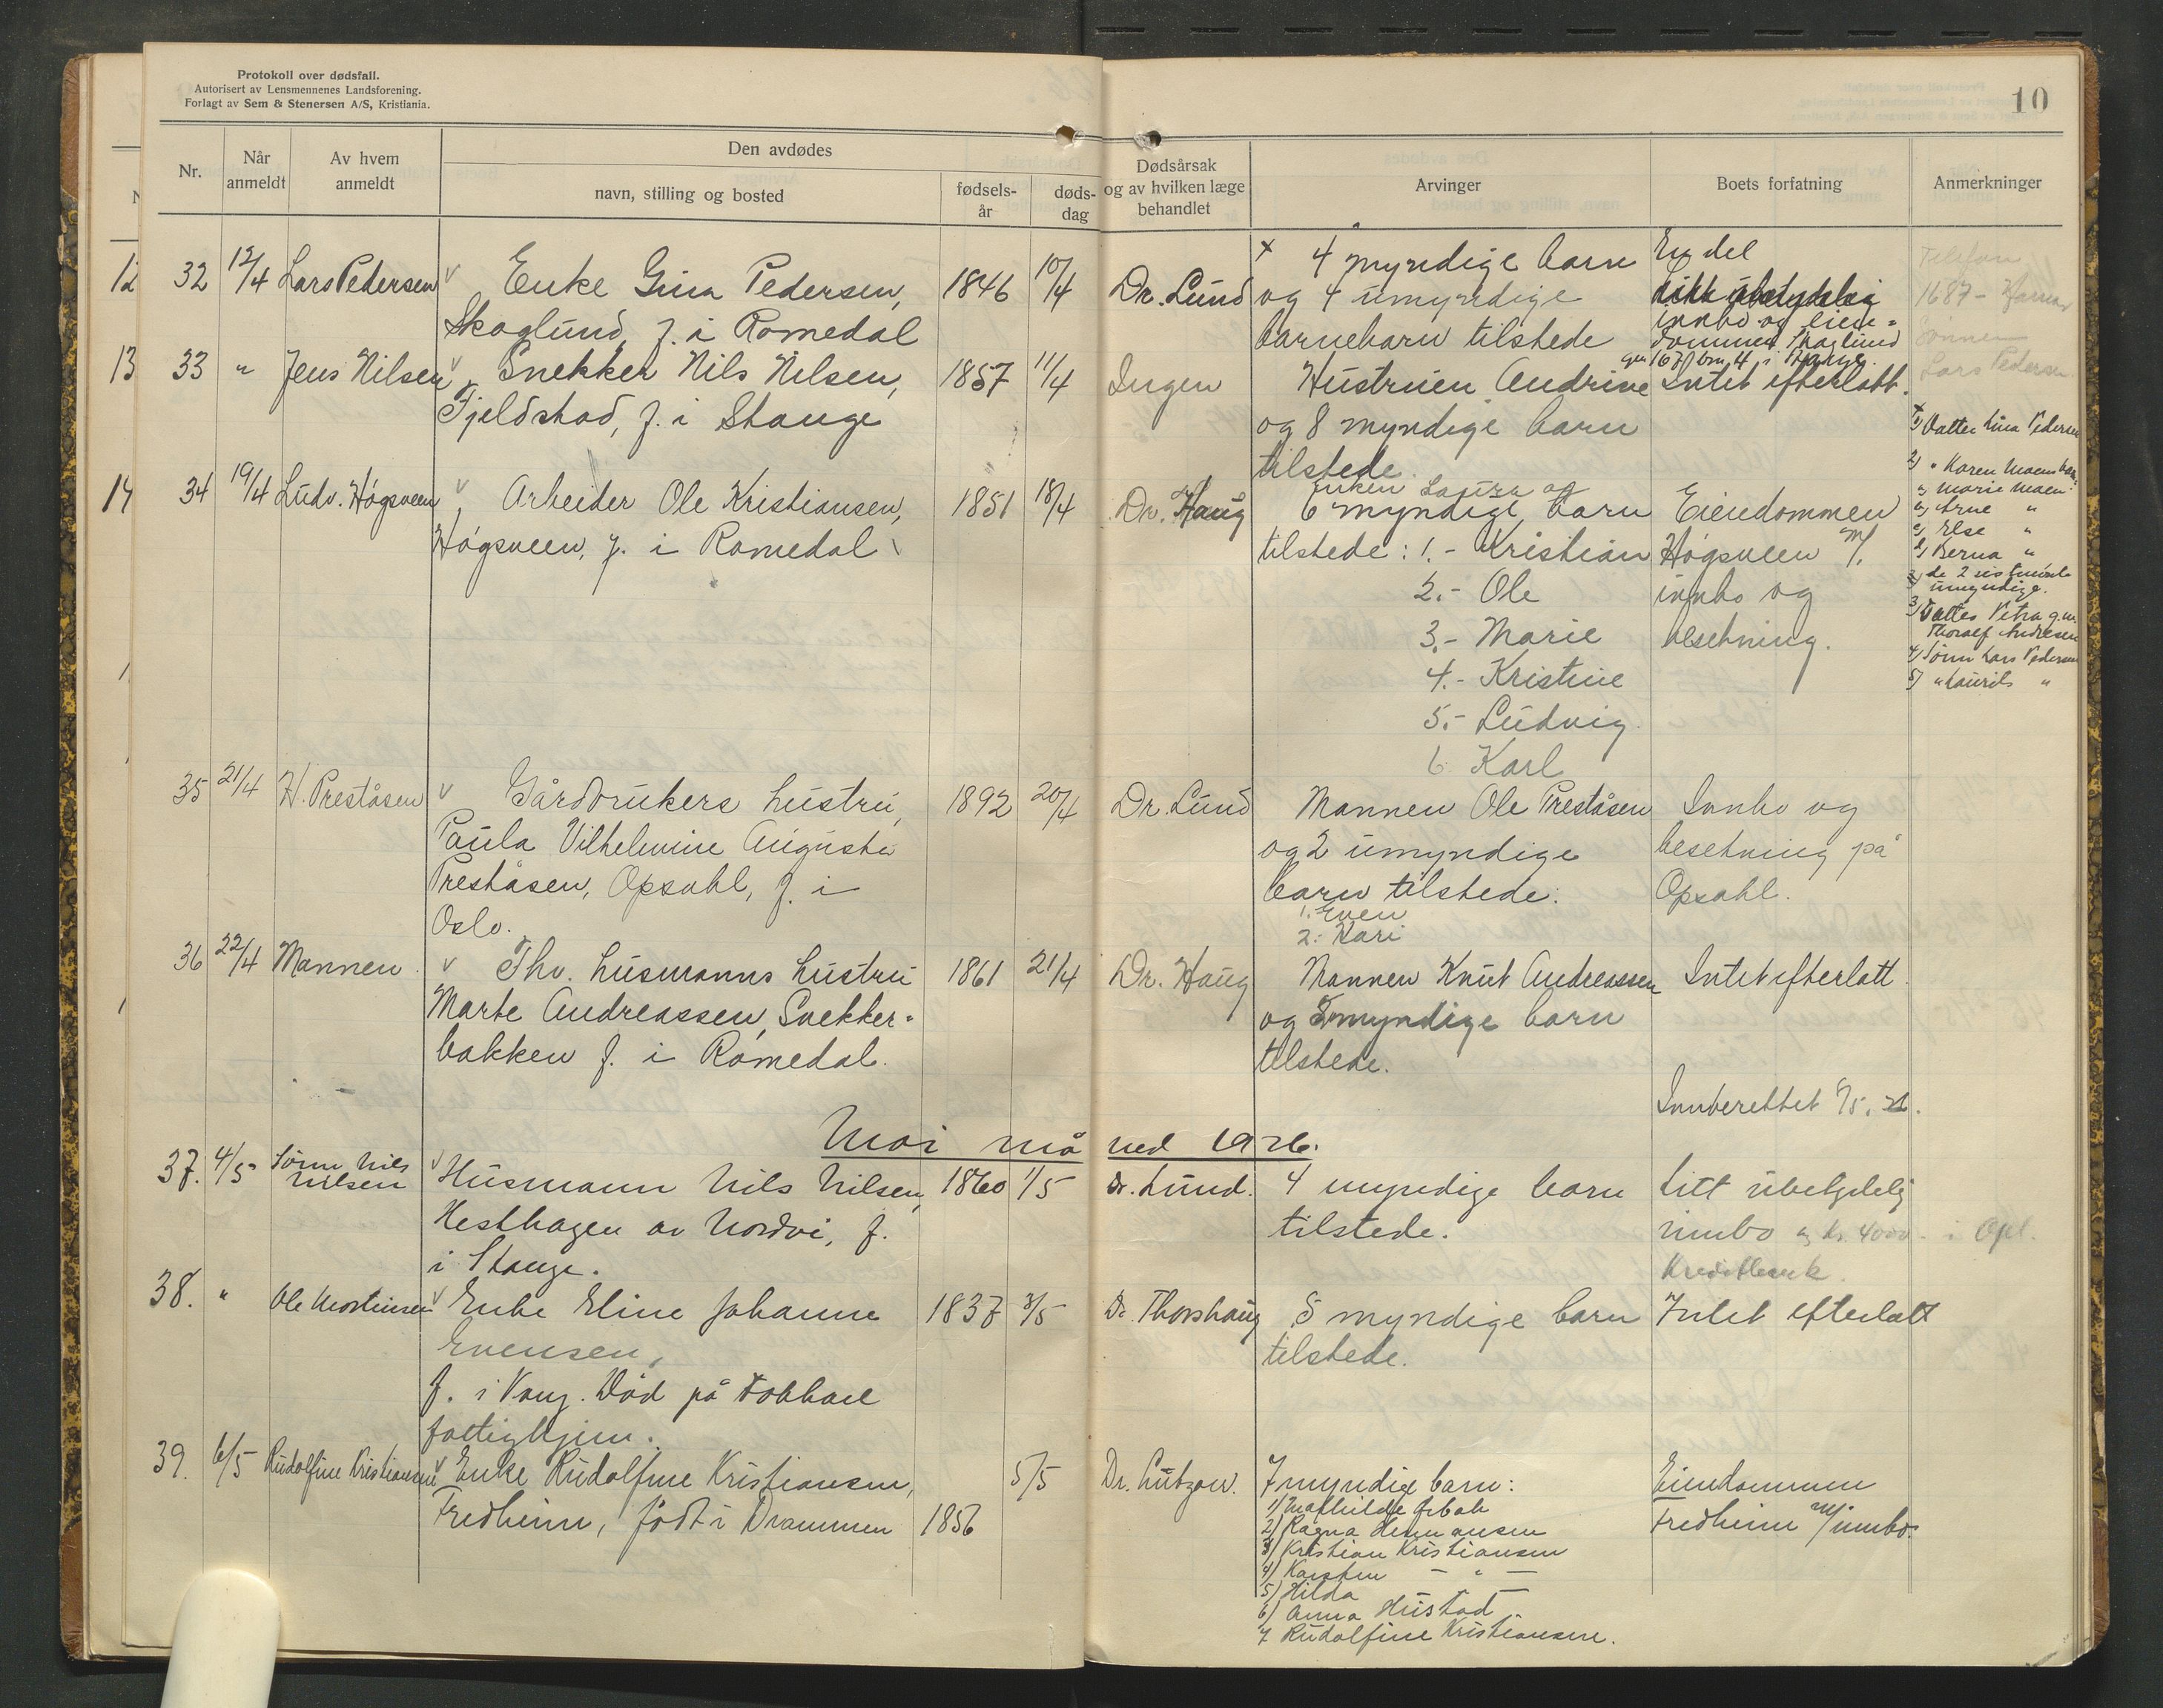 Protokoll over dødsfall.
Autorisert av Lensmennenes Landsforening.
Forlagt av Sem & Stenersen A/S, Kristiania.
10
Nr.
Når anmeldt
Av hvem anmeldt
Den avdødes
navn, stilling og bosted
fødsels-år
døds-dag
Dødsårsak og av hvilken læge behandlet
Arvinger
Boets forfatning
Anmerkninger
12
13
14
32 12/4 Lars Pedersen Enke Gina Pedersen, 1846 10/4 Dr. Lund + 4 myndige barn En del
Skoglund, f. i Romedal og 4 umyndige
barnebarn tilstede innbo og eien-
dommen Skoglund
gnr 167 bnr. 4 i Stange.
Telefon
1687 - Hamar
Sønnen
Lars Pedersen
33 " Jens Nilsen Snekker Nils Nilsen, 1857 11/4 Ingen Hustruen Andrine Intet efterlatt.
Fjeldstad, f. i Stange og 8 myndige barn
tilstede.
+
1) Datter Lina Pedersen
2) " Karen Moen
Marie Moen
Arne "
Else "
Berna "
de 2 sistnevnte
umyndige.
3) Datter Petra g.m.
Thoralf Andresen
4) Sønn Lars Pedersen
5) " Laurits "
34 19/4 Ludv. Høgsveen Arbeider Ole Kristiansen, 1851 18/4 Dr. Haug Enken Laura og
6 myndige barn Eiendommen
Høgsveen, f. i Romedal tilstede: 1.- Kristian Høgsveen m/
2.- Ole innbo og
3.- Marie besetning.
4.- Kristine
5.- Ludvig
6 Karl
35 21/4 H. Preståsen Gårdbrukers hustru, 1892 20/4 Dr. Lund Mannen Ole Preståsen Innbo og
Paula Vilhelmine Augusta og 2 umyndige besetning på
Preståsen, Opsahl, f. i barn tilstede: Opsahl.
Oslo. 1. Even
2.- Kari
36 22/4 Mannen Fhv. husmanns hustru 1861 21/4 Dr. Haug Mannen Knut Andreassen Intet efterlatt.
Marte Andreassen, Snekker- og myndige barn
bakken f. i Romedal. tilstede.
Innberettet 6/5. 26.
Mai måned 1926.
37. 4/5 Sønn Nils Nilsen Husmann Nils Nilsen, 1860 1/5 Dr. Lund. 4 myndige barn Litt ubetydelig
Hesthagen av Nordvi, f. tilstede. innbo og kr. 4000.- i Opl.
i Stange. Kreditbank.
38. " Ole Mortinsen Enke Eline Johanne 1837 3/5 Dr Thorshaug 5 myndige barn Intet efterlatt
Evensen, tilstede.
f. i Vang. Død på
fattighjem.
39. 6/5 Rudolfine Kristiansen Enke Rudolfine Kristiansen, 5/5 Dr. Lützow. 7 myndige barn: Eiendommen
Fredheim, født i Drammen 1856 Fredheim m/innbo.
1) Mathilde
2) Ragna Hermansen
3) Kristian Kristiansen
4) Karsten — " —
5) Hilda —
6) Anna Hustad
7 Rudolfine Kristiansen.